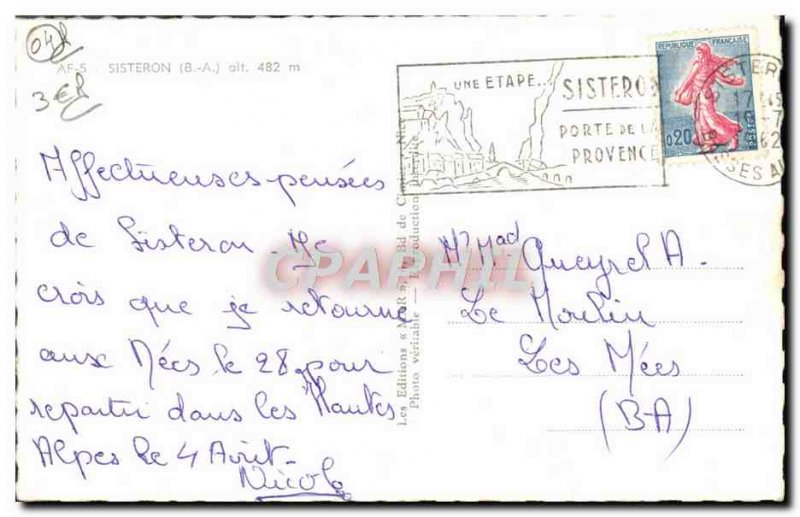 04
AF-5 SISTERON (B.-A.) alt. 482 m
3 €
UNE ETAPE...
SISTERON
PORTE DE LA
PROVENCE
REPUBLIQUE FRANÇAISE
0,20
POSTES
SISTERON
17
62
SES AL
Affectueuses pensées
de Sisteron. Je
crois que je retourne
aux Mées le 28 pour
repartir dans les Hautes
Alpes le 4 Août.
Nicole
Les Editions « MAR », Bd de
Photo véritable — Reproduction interdite
CPAPHIL
Mr Mad Queyrel A.
Le Moulin
Les Mées
(B-A)